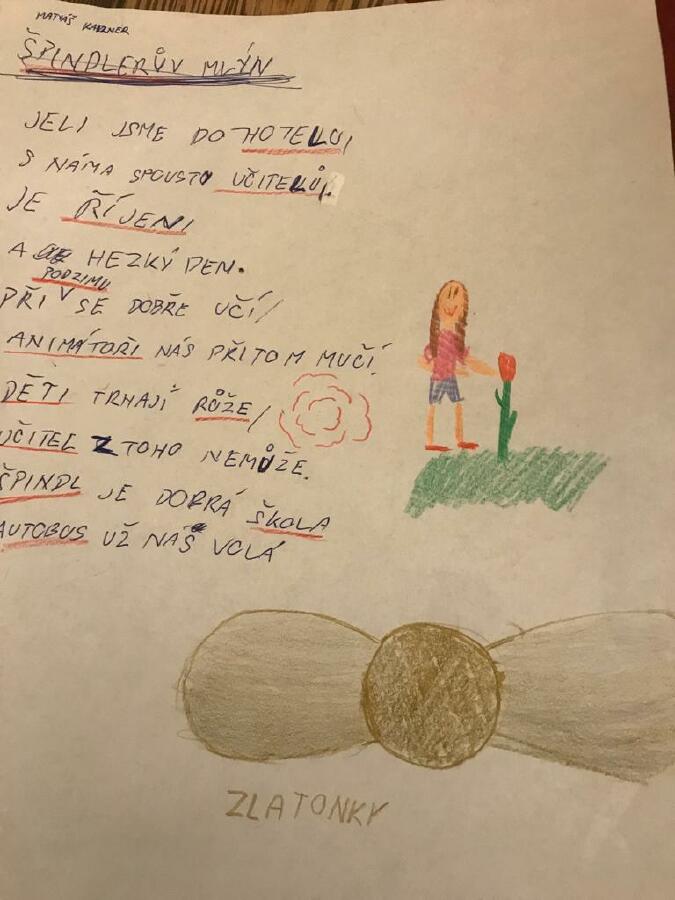 MATYÁŠ
ŠPINDLERŮV MLÝN
JELI JSME DO HOTELU,
S NÁMA SPOUSTO UČITELŮ.
JE ŘÍJEN
A HEZKÝ DEN.
PODZIMU
PŘI SE DOBŘE UČÍ/
ANIMÁTOŘI NÁS PŘITOM MUČÍ.
DĚTI TRHAJÍ RŮŽE/
UČITEL Z TOHO NEMŮŽE.
ŠPINDL JE DOBRÁ ŠKOLA
AUTOBUS UŽ NÁS VOLÁ
ZLATONKY